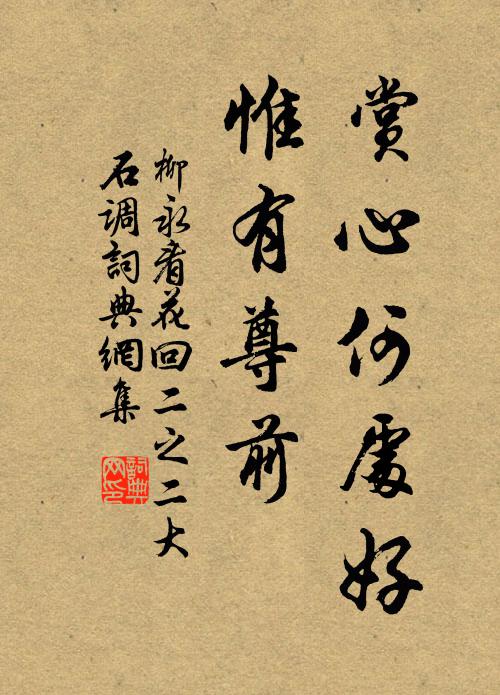 賞心何處好
惟有尊前
柳永看花回二之二大
石調詞典網集
詞典网印